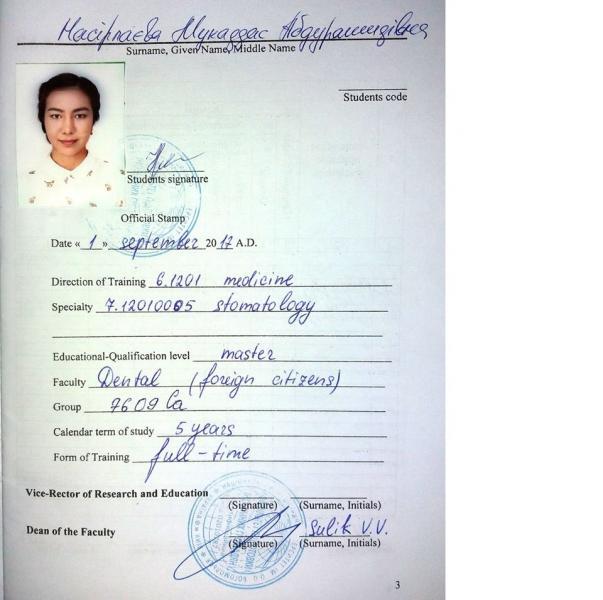 Насірлаєва Мукаддас Абдурашидівна
Surname, Given Name, Middle Name
Students code
Students signature
Official Stamp
Date « 1 » september 2017 A.D.
Direction of Training 6.1201 medicine
Specialty 7.12010005 stomatology
Educational-Qualification level master
Faculty Dental (foreign citizens)
Group 7609 Ca
Calendar term of study 5 years
Form of Training full-time
Vice-Rector of Research and Education
(Signature) (Surname, Initials)
Dean of the Faculty Sulik V.V.
(Signature) (Surname, Initials)
3